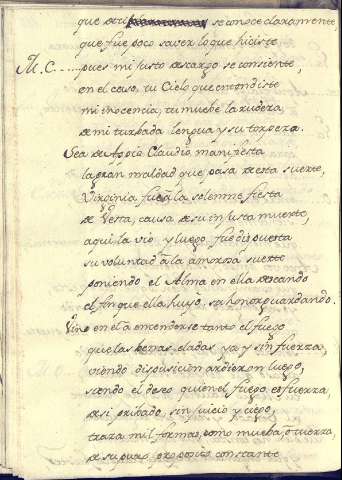 que de ti se conoce claramente,
que fue poco saver lo que hiciste
M. C. pues mi justo descargo se consiente,
en el ceso, tu Cielo que entendiste
mi inocencia, tu muebe la rudeza
de mi turbada lengua y su torpeza.
Sea de Appio Claudio manifiesta
la gran maldad que pasa de esta suerte,
Virginia fue a la solemne fiesta
de Vesta, causa de su injusta muerte,
aqui la vio y luego fue dispuesta
su voluntad a la amorosa suerte
poniendo el Alma en ella deseando
el fin que ella huyo, sa honor guardando.
Vino en el a encenderse tanto el fuego
que las benas eladas ya y sin fuerza,
viendo disposicion ardieron luego,
siendo el deseo quien el fuego esfuerza,
de si pribado, sin juicio y ciego,
traza mil formas, como mueba, o tuerza,
de su puro proposito constante